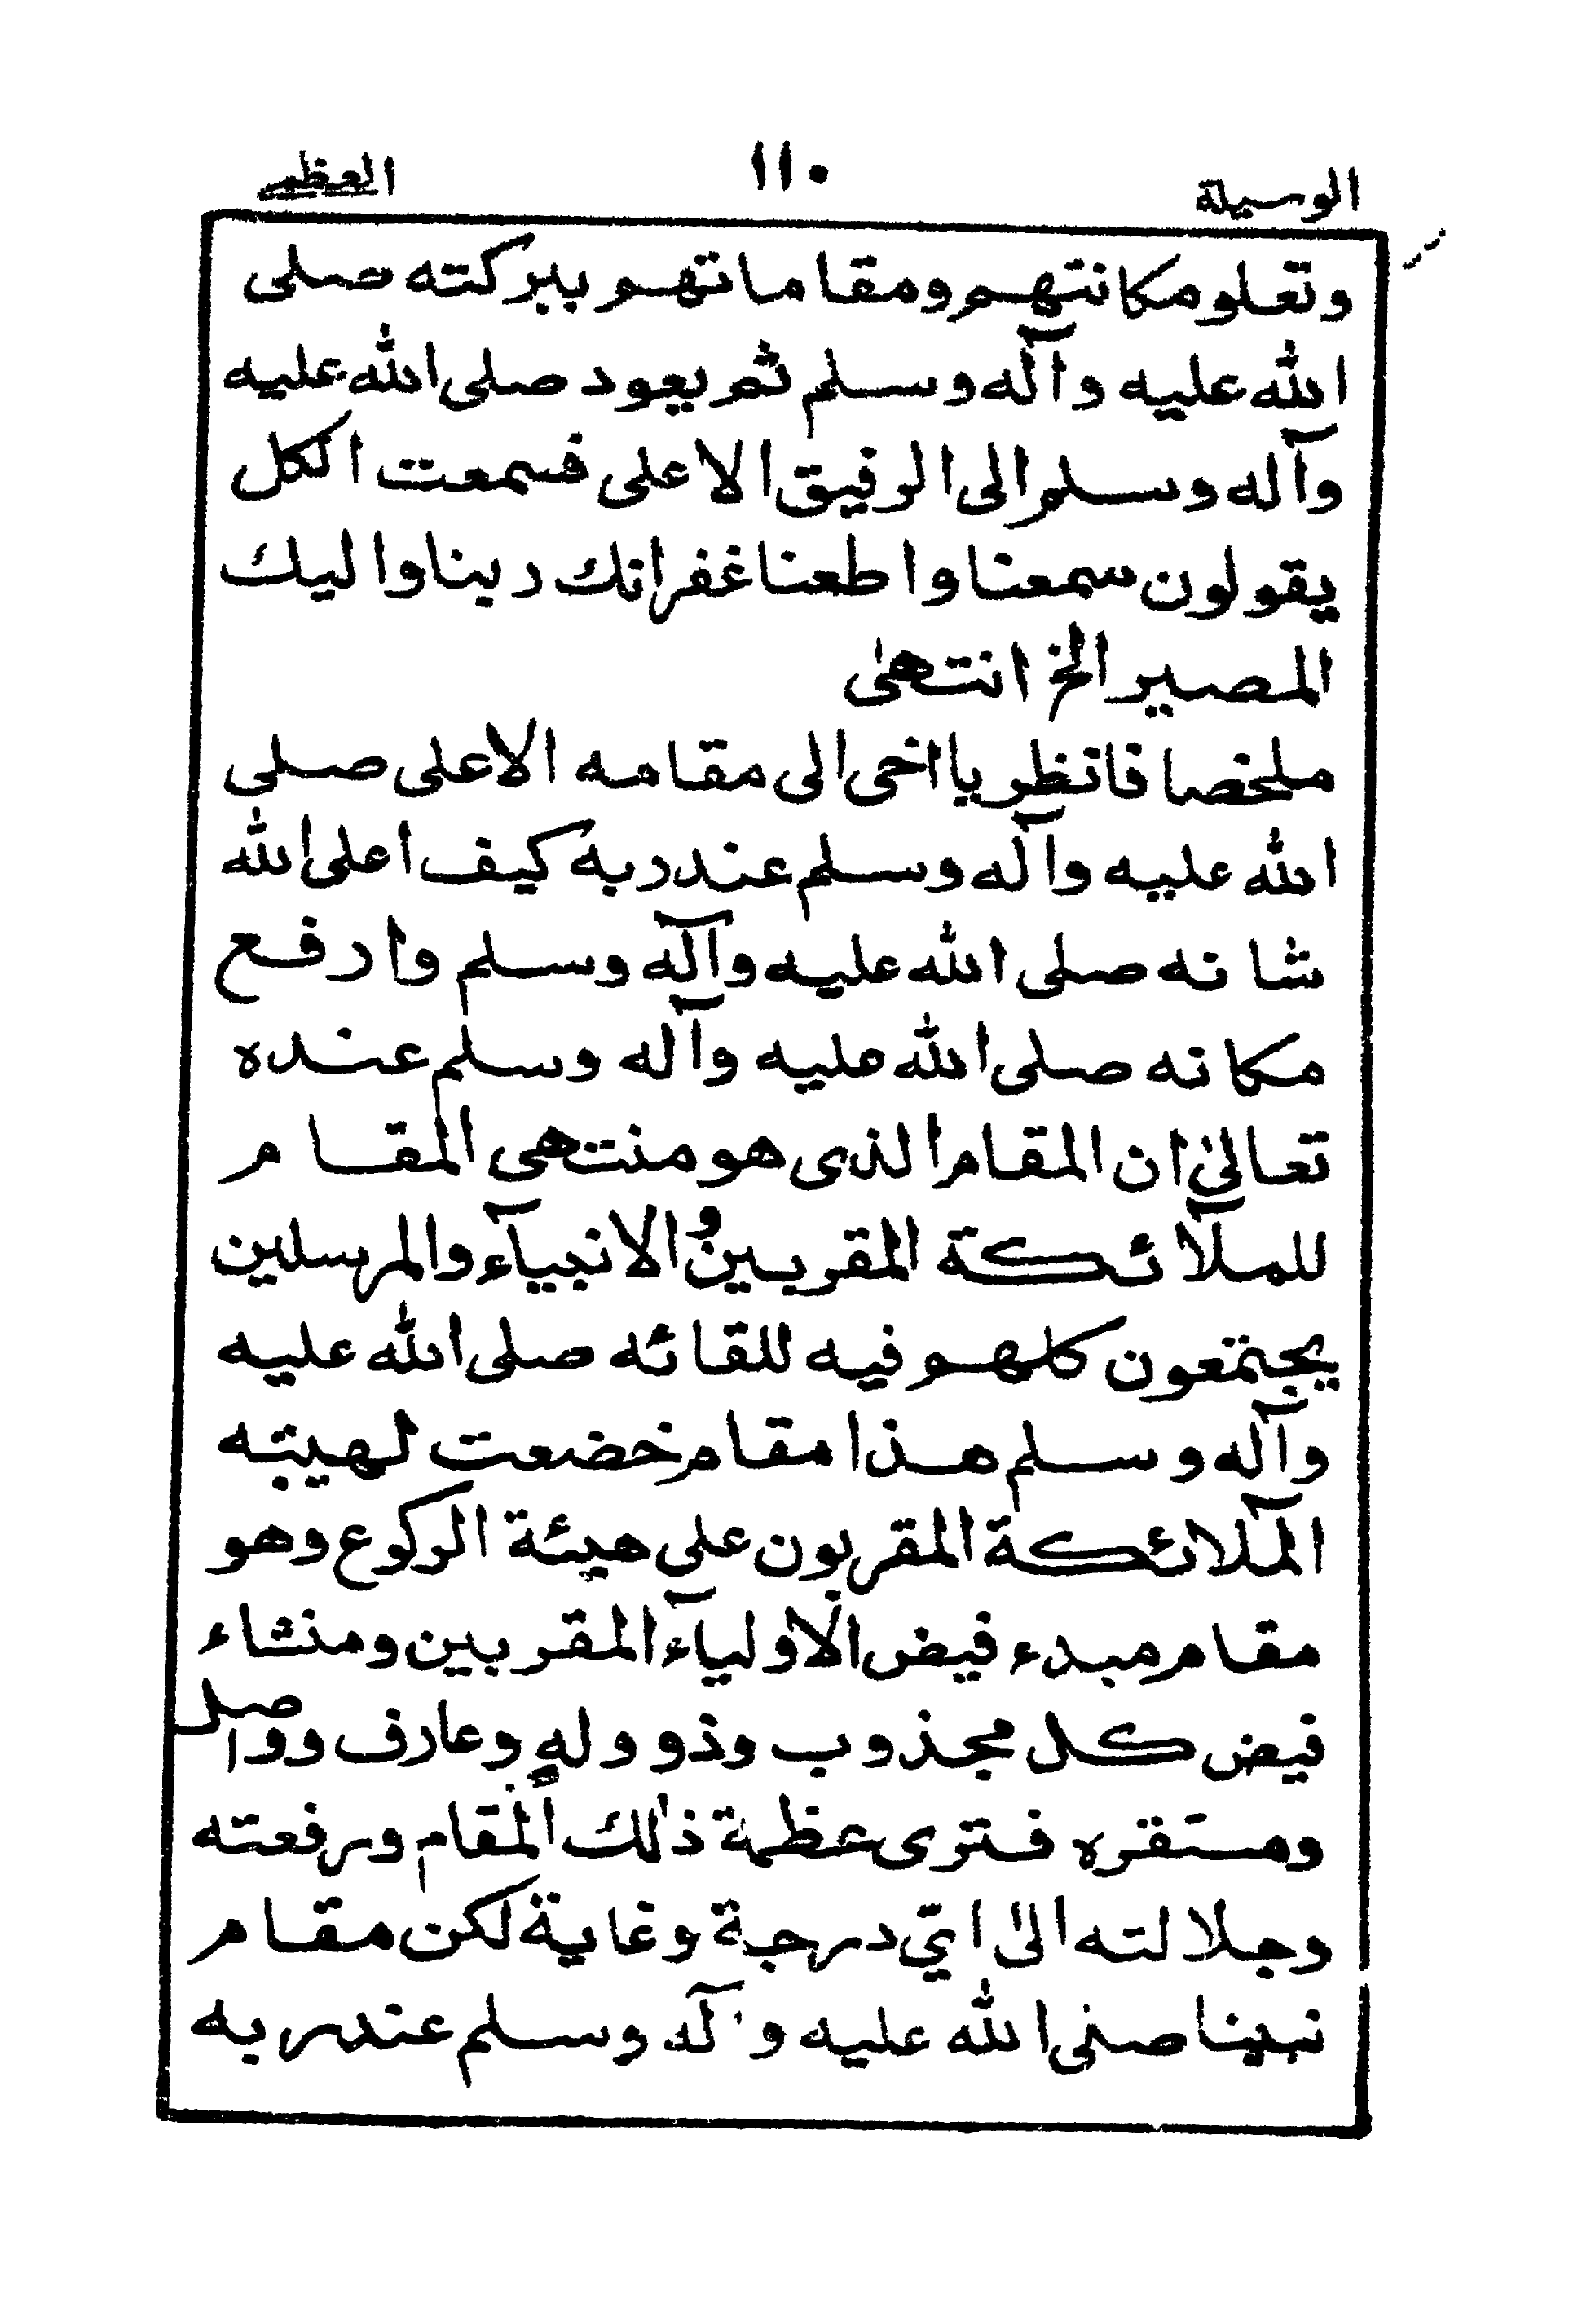 الوسيلة ١١٠ العظمى
وتعلو مكانتهم ومقاماتهم ببركته صلى
الله عليه وآله وسلم ثم يعود صلى الله عليه
وآله وسلم الى الرفيق الاعلى فسمعت الكل
يقولون سمعنا واطعنا غفرانك ربنا واليك
المصير الخ انتهىٰ
ملخصا فانظر يا اخى الى مقامه الاعلى صلى
الله عليه وآله وسلم عند ربه كيف اعلى الله
شانه صلى الله عليه وآله وسلم وارفع
مكانه صلى الله عليه وآله وسلم عنده
تعالىٰ ان المقام الذى هو منتهى المقام
للملآئكة المقربين و الانبيآء والمرسلين
يجتمعون كلهم فيه للقائه صلى الله عليه
وآله وسلم هذا مقام خضعت لهيبته
الملآئكة المقربون على هيئة الركوع وهو
مقام مبدء فيض الاوليآء المقربين ومنشاء
فيض كل مجذوب وذو ولهٍ وعارف وواصل
ومستقره فترى عظمة ذٰلك المقام ورفعته
وجلالته الىٰ ايّ درجة وغاية لكن مقام
نبينا صلى الله عليه وآله وسلم عند ربه